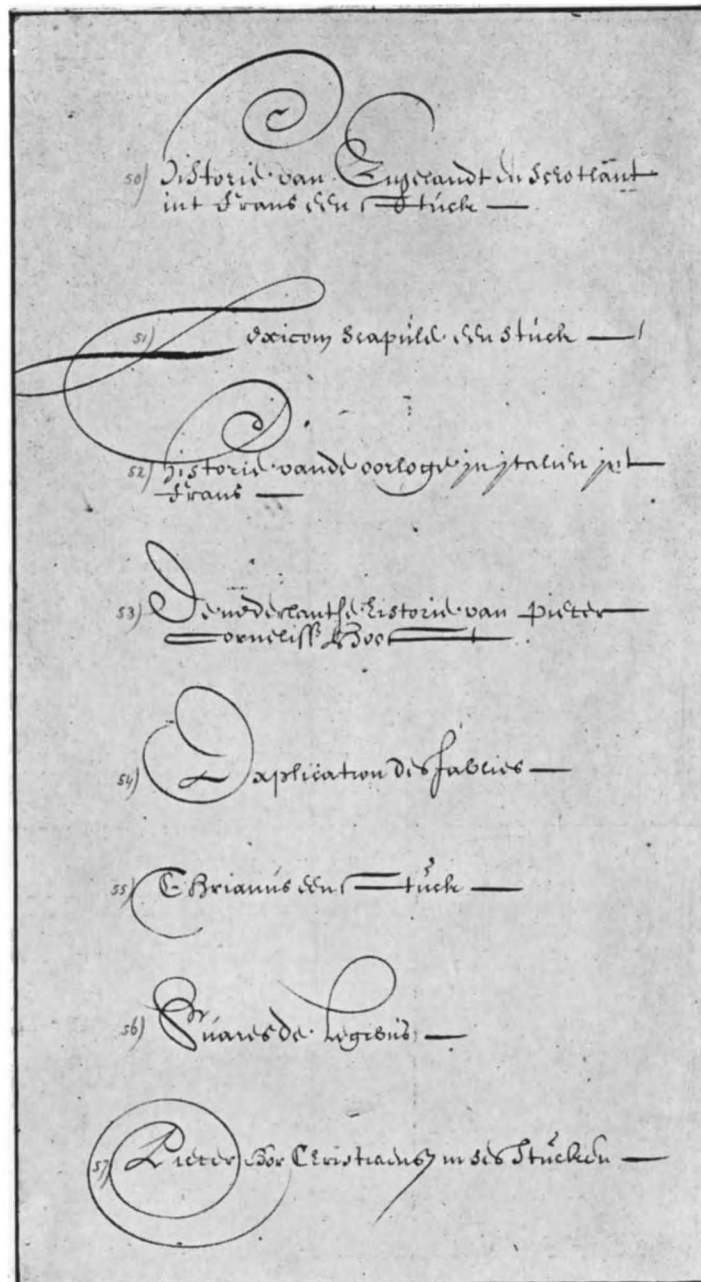 50) Historie van Engelandt en Scrotlant
int Frans een Stuck
51) Lexicom Scapule een Stuck
52) Historie vande oorloge in jtalien int
Frans
53) De nederlantse historie van pieter
Corneliss Hoo
54) Explication des fables
55) een Stuck
56) Suares de Legibus
57) Pieter Bor Christiaensz in ses Stucken